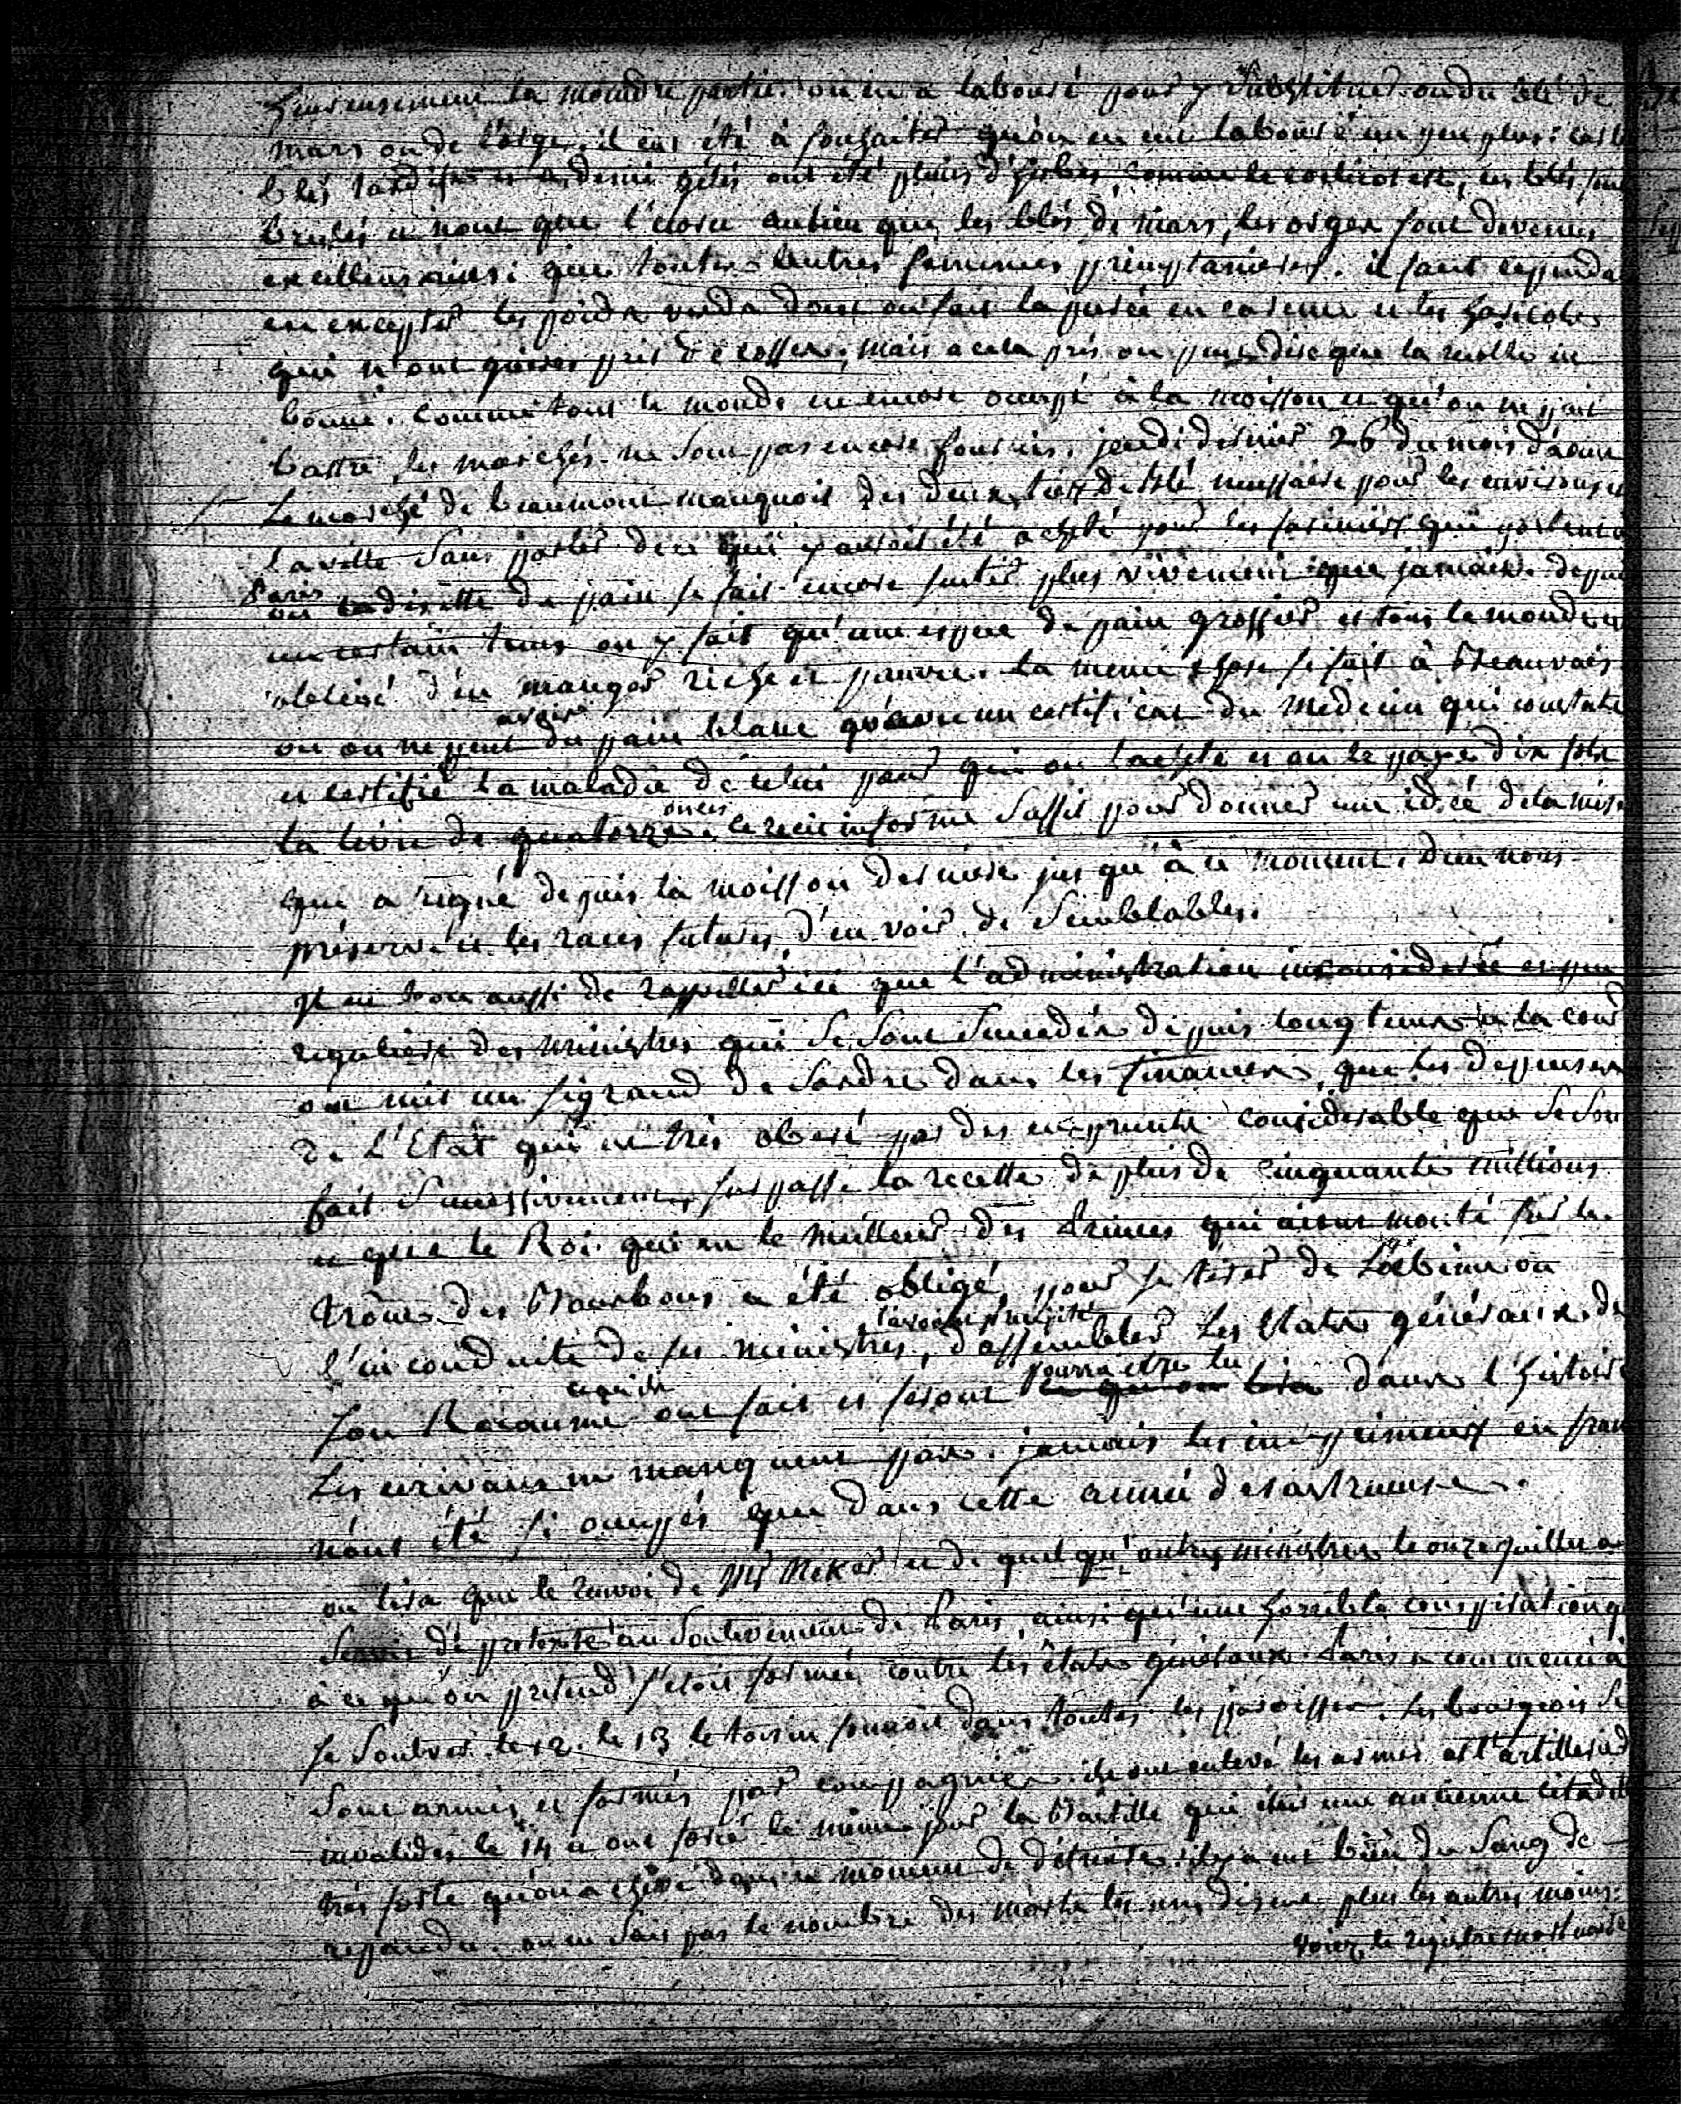 heureusement la moindre partie. on en a labouré pour y substituer ou du blé de
mars ou de l'orge. il eut été à souhaiter qu'on en eut labouré un peu plus: car l
blés tardifs et a demi gelés ont été pleins d'herbes comme le coclicot etc, ces blés sont
brulés et n'ont que l'ecorce au lieu que les blés de mars, les orges sont devenus
excellens ainsi que toutes autres semences printanieres. il faut cependa
en excepter les poids verds dont on fait la purée en careme et les haricots
qui n'ont gueres pris de cosses; mais a cela près on peut dire que la recolte est
bonne. comme tout le monde est encore occupé à la moisson et qu'on ne peut
battre, les marchés ne sont pas encore fournis. jeudi dernier 26 du mois d'aout
Le marché de beaumont manquoit des deux tiers de blé necessaire pour les environs et
la ville sans parler de ce qui y auroit été acheté pour les fariniers qui portent a
Paris
ou la disette de pain se fait encore sentir plus vivement que jamais. depuis
un certain tems on y fait qu'une espece de pain grossier et tout le monde est
obligé d'en manger riche et pauvre. la meme chose se fait à Beauvais
avoir
ou on ne peut du pain blanc qu'avec un certificat du medecin qui constate
et certifie la maladie de celui pour qui on l'achete et on le paye dix sols
onces
la livre de quatorze. ce recit informe suffit pour donner une idée de la mise
qui a regné depuis la moisson derniere jusqu'à ce moment. dieu nous
préserve et les races futures d'en voir de semblables.
Il est bon aussi de rappeller ici que l'administration inconsiderée et peu
reguliere des ministres qui se sont succedés depuis longtems a la cour
ont mis un si grand desordre dans les finances, que les depenses
de L'Etat qui est très oberé par des emprunts considerable que se sont
fait successivement, surpasse la recette de plus de cinquante millions
et que le Roi qui est le meilleur des Princes qui aient monté sur le
trône des Bourbons a été obligé, pour se tirer de l'abime où
l'avoient precipité
l'inconduite de ses ministres, d'assembler Les Etats généraux de
ce qu'ils pourra etre lu
son Roiaume ont fait et feront dans l'histoire
Les ecrivains ne manquent pas. jamais les imprimeurs en fran
n'ont été si occupés que dans cette année desastreuse.
on lira que le renvoi de Mr Neker et de quelqu'autres ministres le onze juillet a
Servir de pretexte au soulevement de Paris, ainsi qu'une horrible conspiration q
à ce qu'on pretend s'étoit formée contre les états généraux. Paris a commencé à
se soulever le 12. le 13 le tocsin sonnoit dans toutes les paroisses. les bourgeois se
sont armés et formés par compagnies. ils ont enlevé les armes et l'artillerie d
invalides le 14 et ont forcé le même jour la Bastille qui étoit une ancienne citadel
très forte qu'on a achevé depuis ce moment de détruire. il y a eu bien du sang de
repandu. on ne sait pas le nombre des morts les uns disent plus les autres moins:
voiez le registre